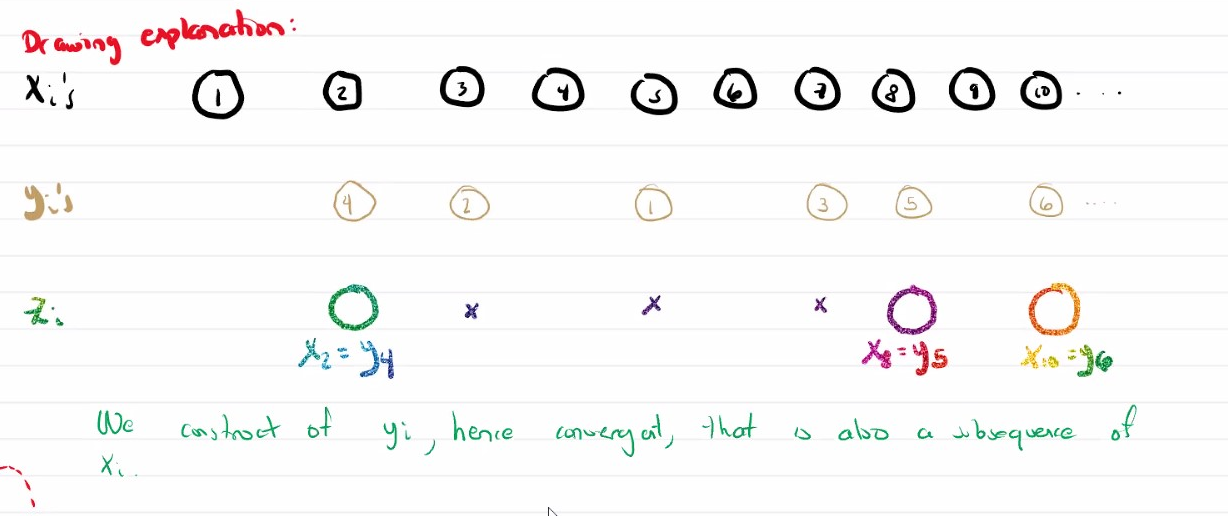 Drawing explanation:
Xi's 1 2 3 4 5 6 7 8 9 10 ....
yi's 4 2 1 3 5 6 ....
Zi x x x
X2 = y4 X8 = y5 X10 = y6
We construct of yi, hence convergent, that is also a subsequence of
Xi.